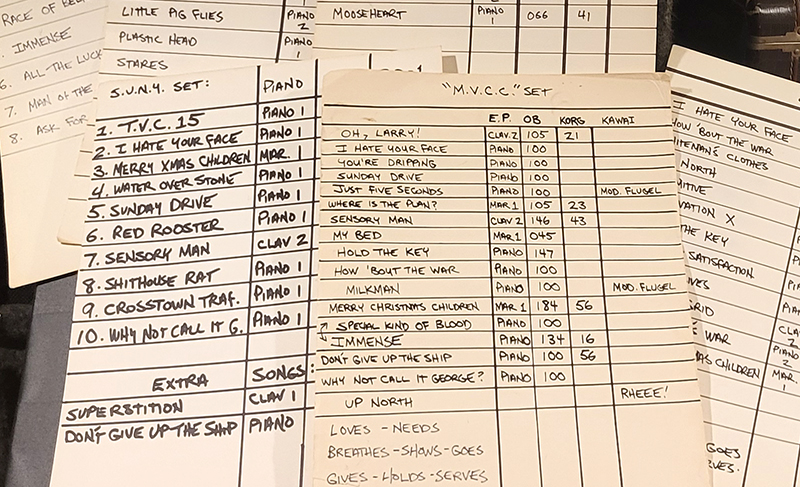 RACE OF
IMMENSE
6. ALL THE LUCK
7. MAN OF THE
8. ASK FOR
LITTLE PIG FLIES PIANO 2
PLASTIC HEAD PIANO 1
STARES
MOOSEHEART PIANO 1 066 41
S.U.N.Y. SET: PIANO
1. T.V.C. 15 PIANO 1
2. I HATE YOUR FACE PIANO 1
3. MERRY XMAS CHILDREN MAR. 1
4. WATER OVER STONE PIANO 1
5. SUNDAY DRIVE PIANO 1
6. RED ROOSTER PIANO 1
7. SENSORY MAN CLAV 2
8. SHITHOUSE RAT PIANO 1
9. CROSSTOWN TRAF. PIANO 1
10. WHY NOT CALL IT G. PIANO 1
EXTRA SONGS:
SUPERSTITION CLAV 1
DON'T GIVE UP THE SHIP PIANO
"M.V.C.C." SET
E.P. OB KORG KAWAI
OH, LARRY! CLAV.2 105 21
I HATE YOUR FACE PIANO 100
YOU'RE DRIPPING PIANO 100
SUNDAY DRIVE PIANO 100
JUST FIVE SECONDS PIANO 100 MOD. FLUGEL
WHERE IS THE PLAN? MAR.1 105 23
SENSORY MAN CLAV 2 146 43
MY BED MAR.1 045
HOLD THE KEY PIANO 147
HOW 'BOUT THE WAR PIANO 100
MILKMAN PIANO 100 MOD. FLUGEL
MERRY CHRISTMAS CHILDREN MAR.1 184 56
SPECIAL KIND OF BLOOD PIANO 100
IMMENSE PIANO 134 16
DON'T GIVE UP THE SHIP PIANO 100 56
WHY NOT CALL IT GEORGE? PIANO 100
UP NORTH RHEEE!
LOVES - NEEDS
BREATHES - SHOWS - GOES
GIVES - HOLDS - SERVES
I HATE YOUR FACE
HOW 'BOUT THE WAR
CLOTHES
NORTH
VATION X
THE KEY
SATISFACTION
WAR
CHILDREN
GOES